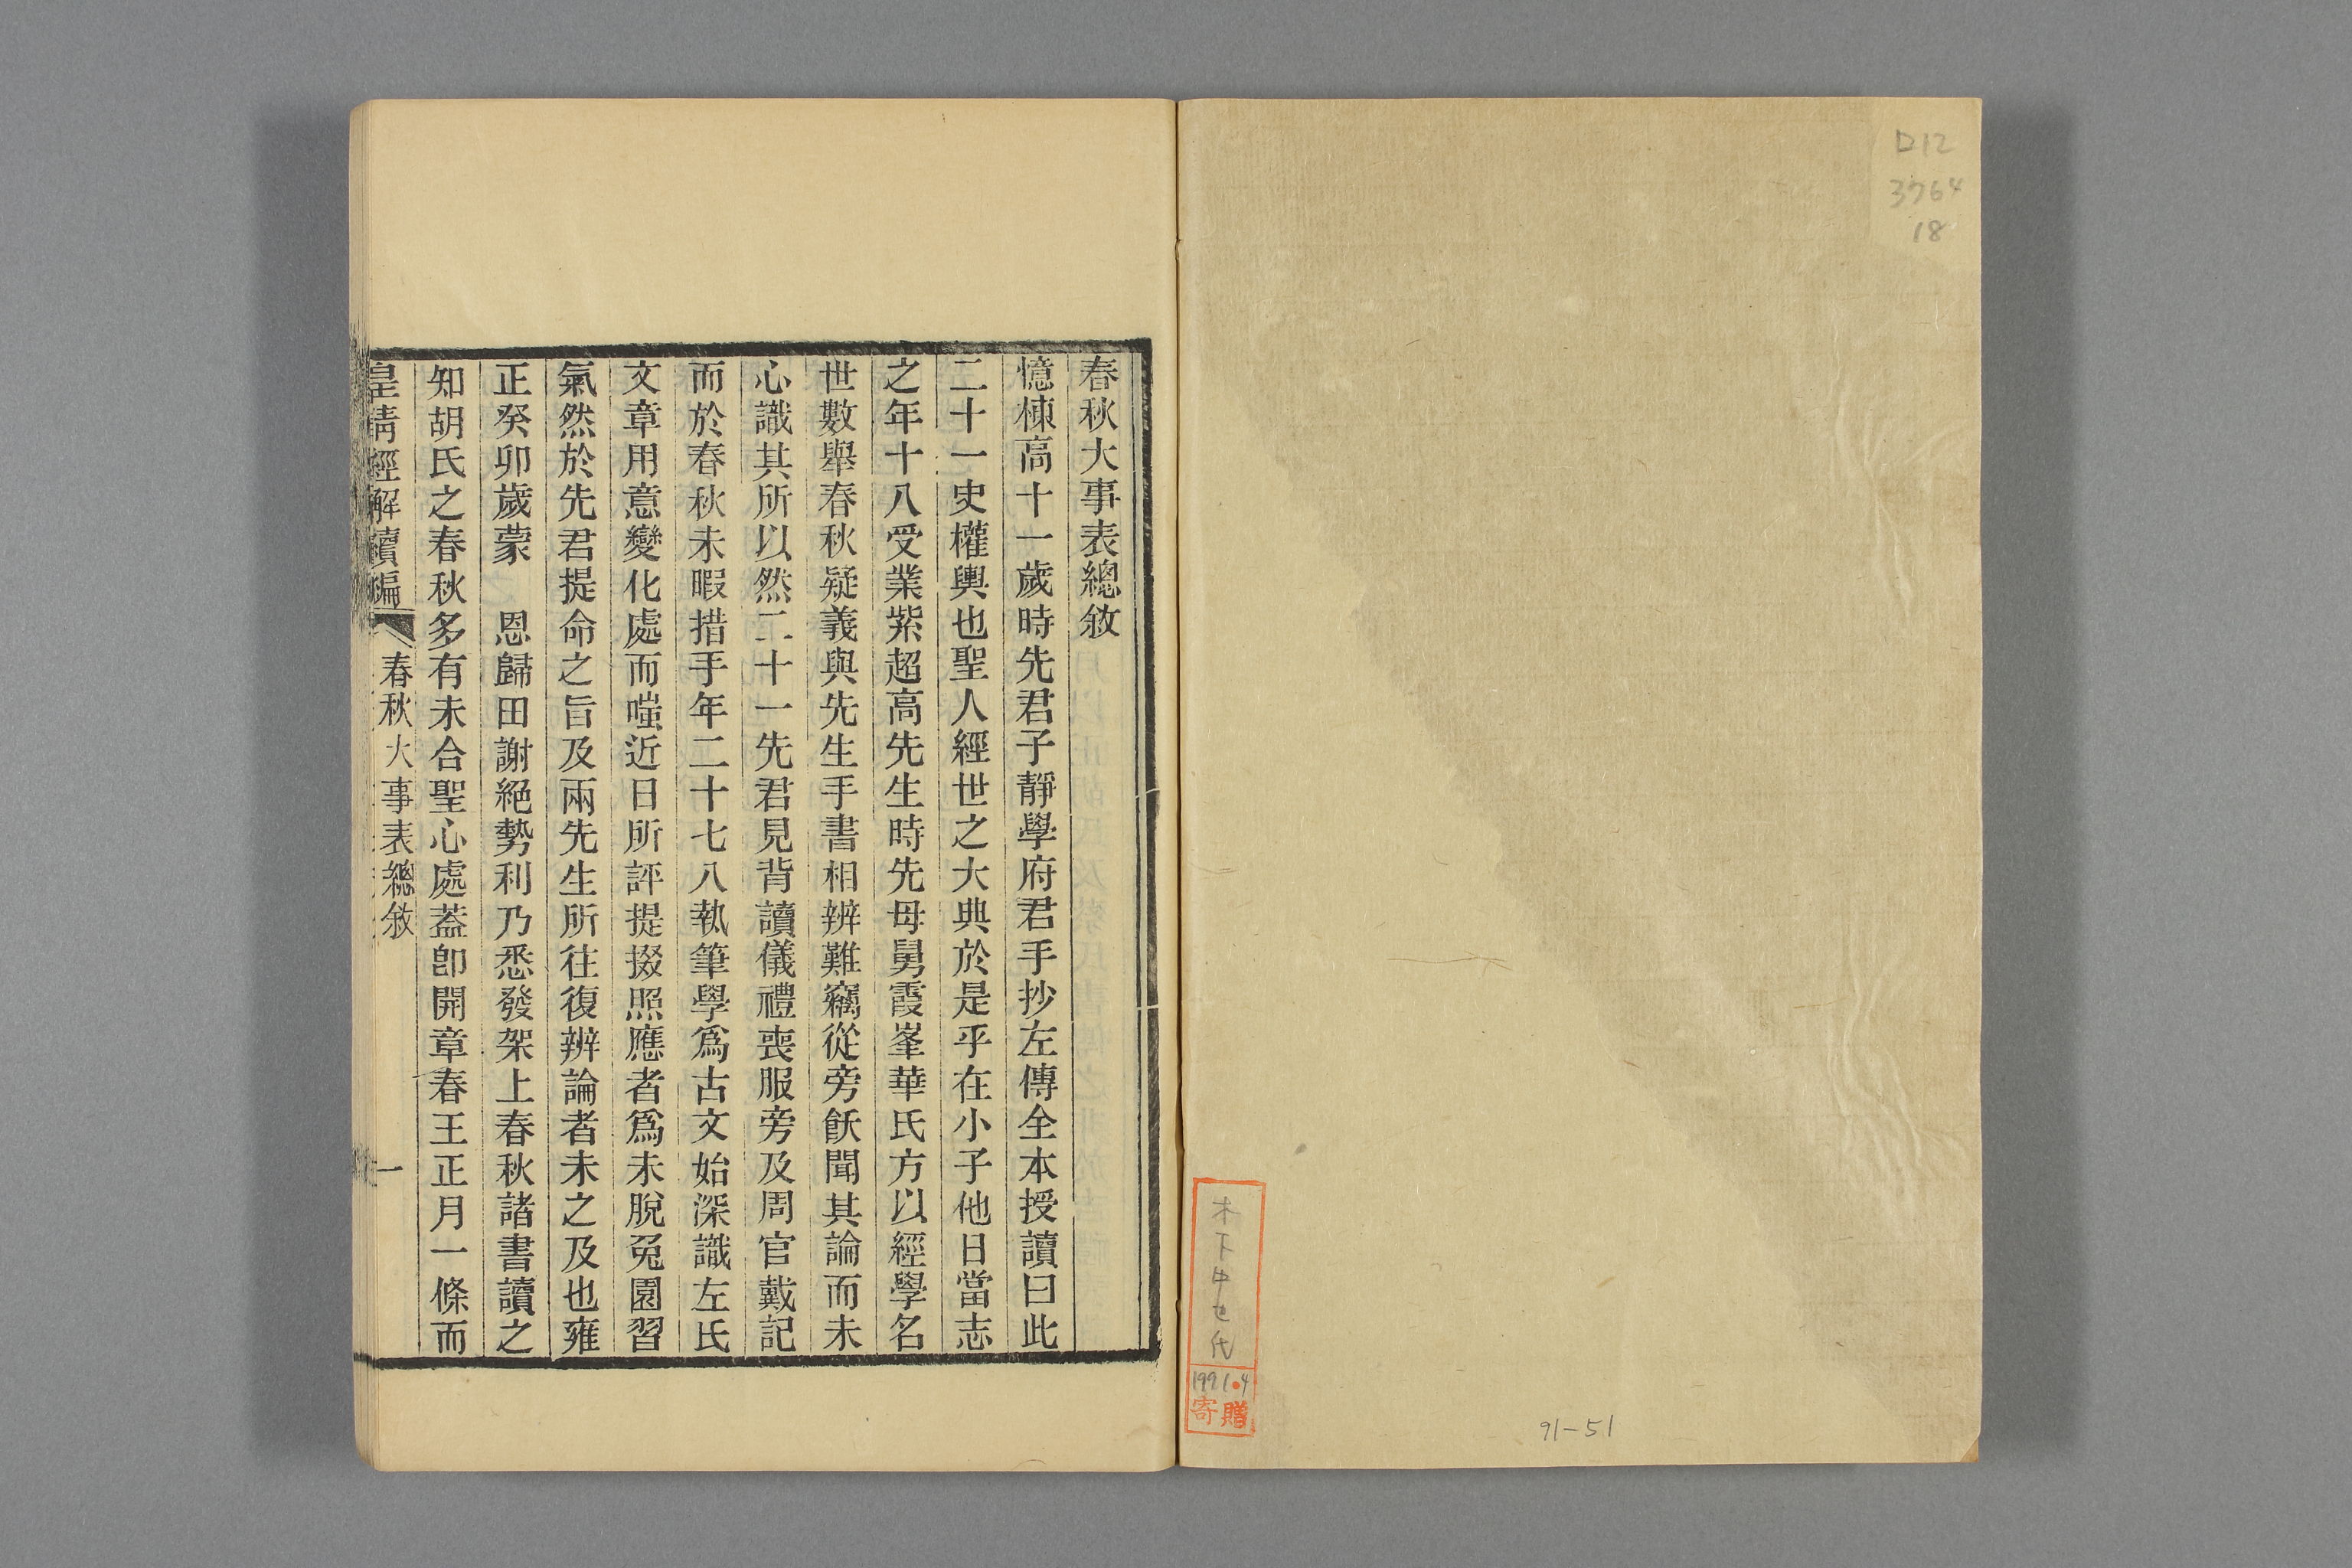 D12
3764
18
木下中也氏
1991.4
寄贈
91-51
春秋大事表總敘
憶棟高十一歲時先君子靜學府君手抄左傳全本授讀曰此
二十一史權輿也聖人經世之大典於是乎在小子他日當志
之年十八受業紫超高先生時先母舅霞峯華氏方以經學名
世數舉春秋疑義與先生手書相辨難竊從旁飫聞其論而未
心識其所以然二十一先君見背讀儀禮喪服旁及周官戴記
而於春秋未暇措手年二十七八執筆學爲古文始深識左氏
文章用意變化處而嗤近日所評提掇照應者爲未脫兔園習
氣然於先君提命之旨及兩先生所往復辨論者未之及也雍
正癸卯歲蒙　恩歸田謝絕勢利乃悉發架上春秋諸書讀之
知胡氏之春秋多有未合聖心處蓋卽開章春王正月一條而
皇清經解續編　春秋大事表總敘　一